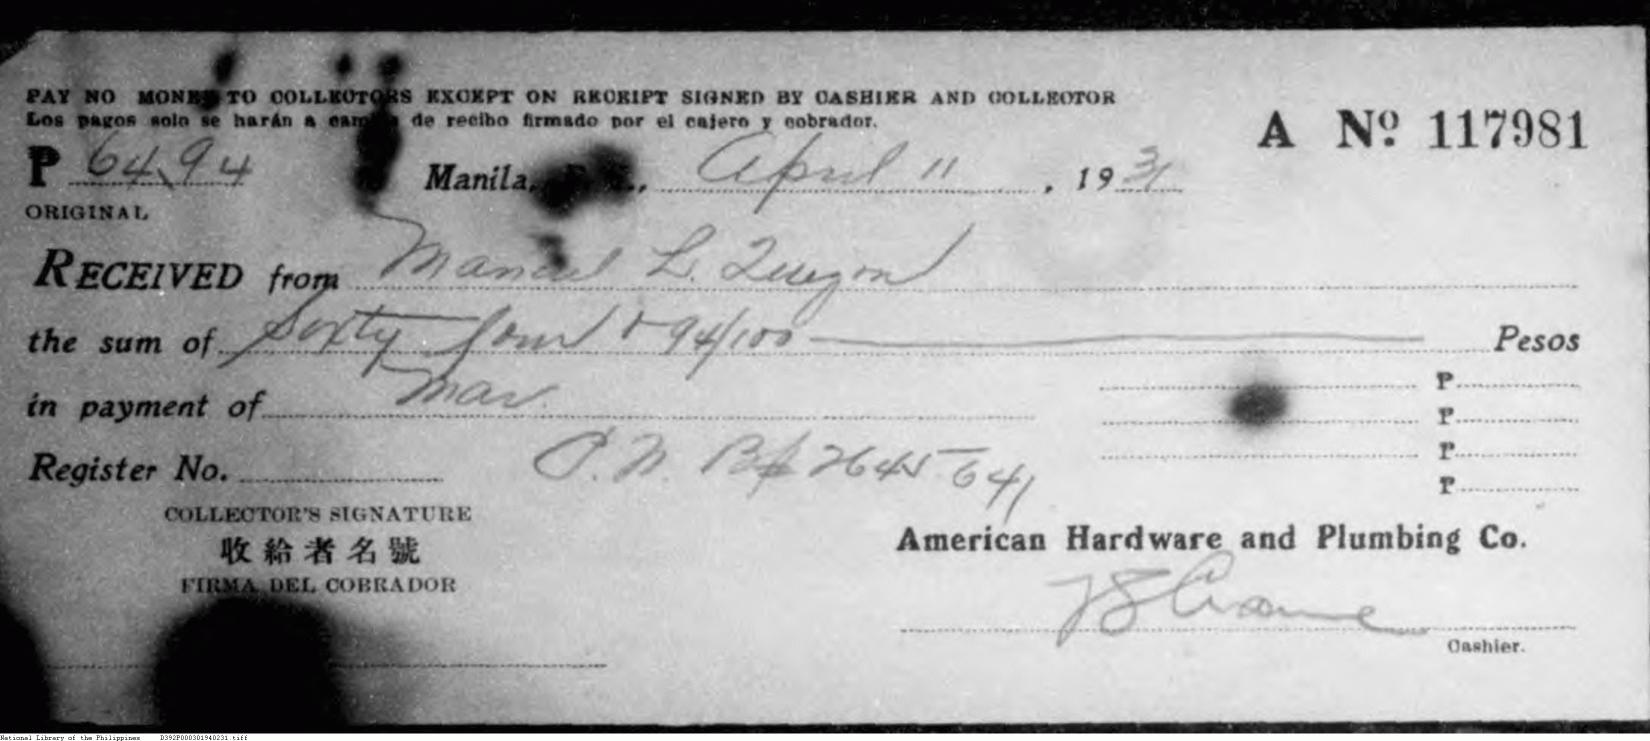 PAY NO MONEY TO COLLECTORS EXCEPT ON RECEIPT SIGNED BY CASHIER AND COLLECTOR
Los pagos solo se harán a de recibo firmado por el cajero y cobrador.
A Nº 117981
₱ 64.94 Manila, April 11, 1931
ORIGINAL
RECEIVED from Manuel L. Quezon
the sum of Sixty four & 94/100 Pesos
in payment of Mar. ₱
₱
₱
Register No. P.N. B/# 2645-641 ₱
COLLECTOR'S SIGNATURE
收給者名號
FIRMA DEL COBRADOR
American Hardware and Plumbing Co.
Cashier.
National Library of the Philippines D392P000301940231.tiff